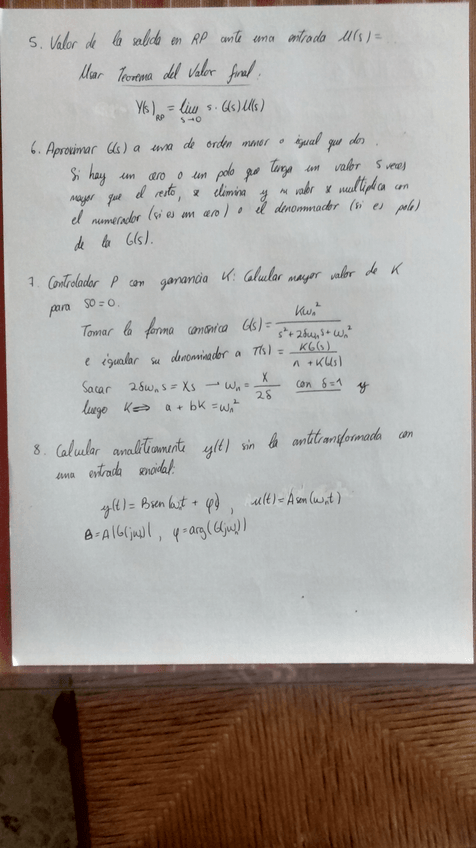 5. Valor de la salida en RP ante una entrada U(s)=
Usar Teorema del Valor final.
Y(s)_RP = lim s→0 s·G(s)U(s)
6. Aproximar G(s) a una de orden menor o igual que dos.
Si hay un cero o un polo que tenga un valor 5 veces
mayor que el resto, se elimina y su valor se multiplica con
el numerador (si es un cero) o el denominador (si es polo)
de la G(s).
7. Controlador P con ganancia K: Calcular mayor valor de K
para SO=0.
Tomar la forma canónica G(s) = Kωn² / (s² + 2δωn s + ωn²)
e igualar su denominador a T(s) = KG(s) / (1 + KG(s))
Sacar 2δωn s = Xs → ωn = X / 2δ con δ=1 y
luego K ⟺ a + bK = ωn²
8. Calcular analíticamente y(t) sin la antitransformada con
una entrada senoidal:
y(t) = B sen(ωt + φ), u(t) = A sen(ωn t)
B = A|G(jω)|, φ = arg(G(jω))